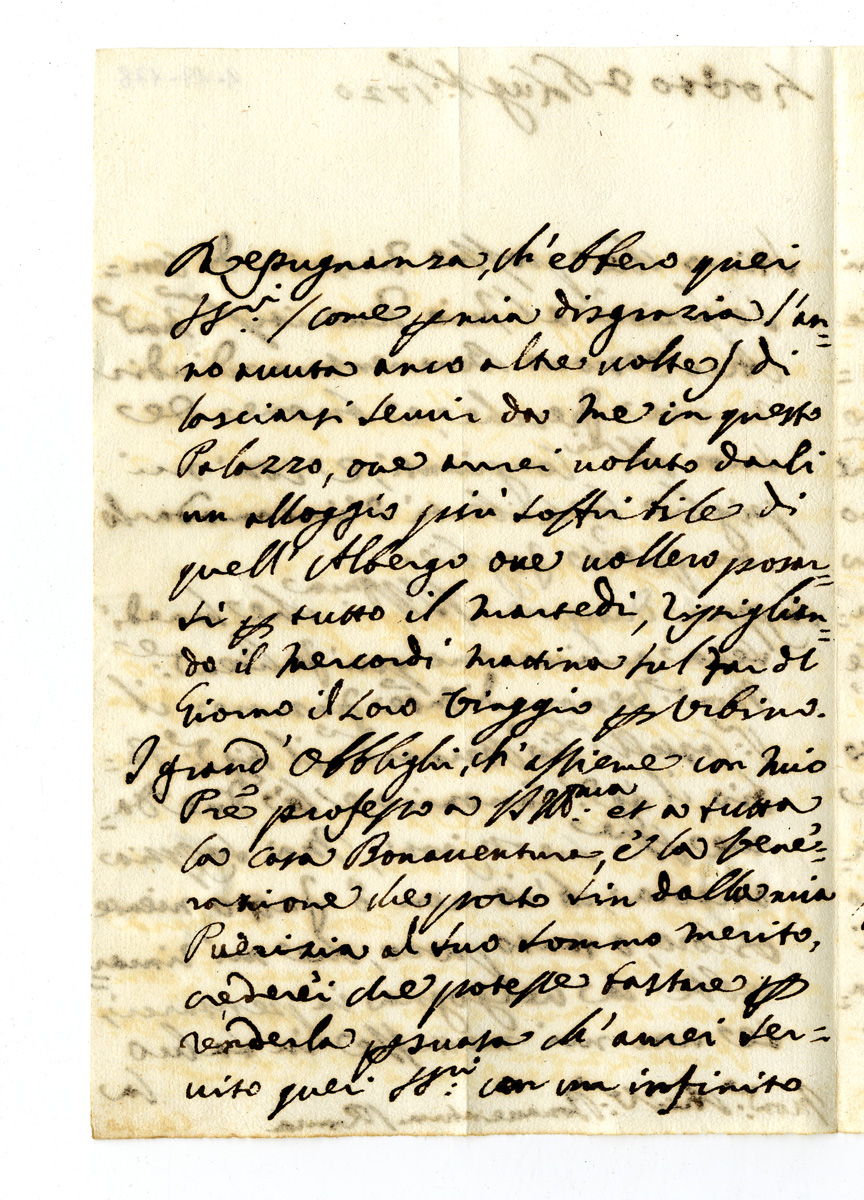 Repugnanza, ch'ebbero quei
SS.ri (come p mia disgrazia l'an=
no avuta anco altre volte) di
lasciarsi servir da me in questo
Palazzo, ove avrei voluto darli
un alloggio più soffribile di
quell'Albergo ove vollero posar=
si p tutto il Martedì, ripiglian=
do il Mercordì mattina sul far del
Giorno il loro Viaggio p Urbino.
I grand'Obblighi, ch'assieme con mio
Pre professo a
et a tutta
la Casa Bonaventura, e la Vene=
razione che porto sin dalla mia
Puerizia al suo sommo merito,
crederei che potesse bastare p
renderla psuasa ch'avrei ser=
vito quei SS.ri con un infinito